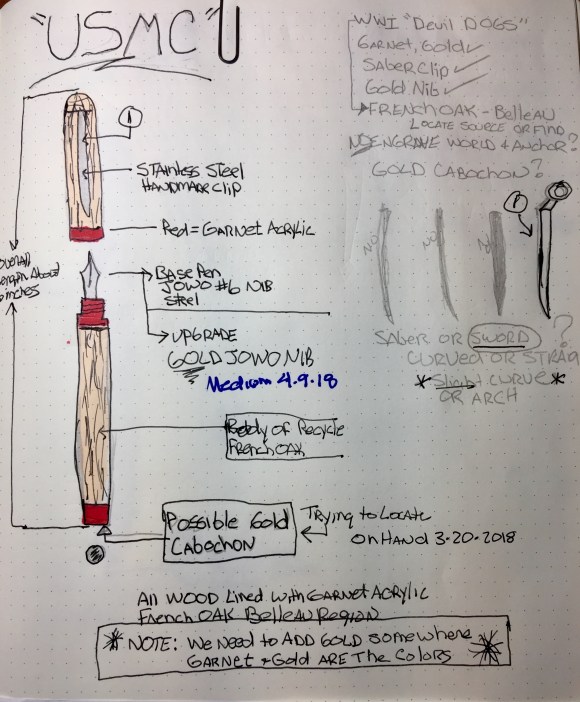 "USMC"
WWI "Devil DOGS"
GARNET, Gold ✓
SABER Clip ✓
Gold Nib ✓
FRENCH OAK - BelleAU
LOCATE SOURCE OR FIND
NO ENGRAVE WORLD & ANCHOR?
GOLD CABOCHON?
1
STAINless Steel
HANDMADE Clip
Red = GARNET ACRYLIC
overall
length About
6 inches
BASE Pen
JOWO #6 NIB
Steel
UPGRADE
GOLD JOWO NIB
Medium 4.9.18
1
NO
NO
NO
SABER OR SWORD ?
CURVED OR STRAG
*Slight CURVE*
OR ARCH
Body of Recycle
French OAK
Possible Gold
CABOCHON
TRying to LOCATE
ON HAND 3-20-2018
All WOOD LINED WITH GARNET ACRYLIC
FRENCH OAK BelleAU REGION
* NOTE: We Need to ADD GOLD somewhere
GARNET & Gold ARE The COLORS